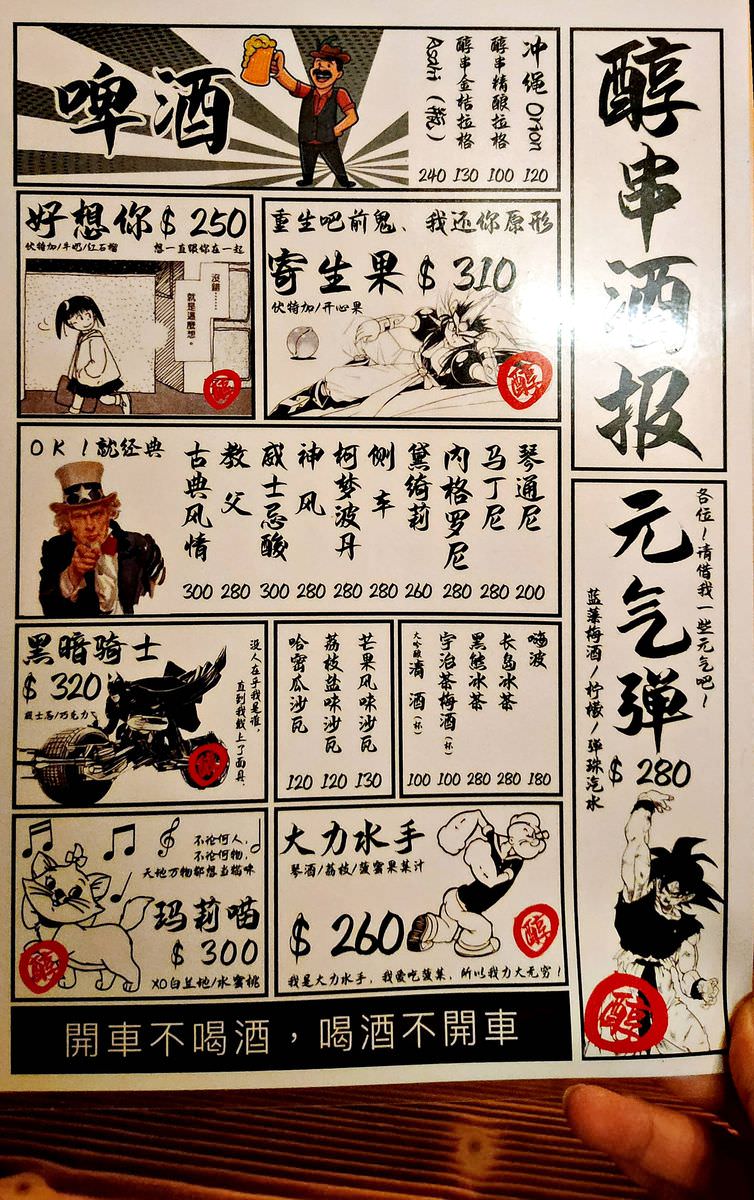 醇串酒报
啤酒
冲绳 Orion 120
醇串精酿拉格 100
醇串金桔拉格 130
Asahi（瓶） 240
好想你 $ 250
伏特加/牛奶/红石榴
想一直跟你在一起
沒錯……
就是這麼想。
醇
重生吧前鬼、我还你原形
寄生果 $ 310
伏特加/开心果
醇
OK！就经典
琴通尼 200
马丁尼 280
内格罗尼 280
黛绮莉 260
侧车 280
柯梦波丹 280
神风 280
威士忌酸 300
教父 280
古典风情 300
各位！请借我一些元气吧！
元气弹
$ 280
蓝藻梅酒/柠檬/弹珠汽水
醇
黑暗骑士
$ 320
威士忌/巧克力
没人在乎我是谁，
直到我戴上了面具。
醇
芒果风味沙瓦 130
荔枝盐味沙瓦 120
哈密瓜沙瓦 120
嗨波 180
长岛冰茶 280
黑熊冰茶 280
宇治茶梅酒（杯） 100
大吟酿清酒（杯） 100
不论何人，
不论何物，
天地万物都想当猫咪
玛莉喵
$ 300
XO白兰地/水蜜桃
醇
大力水手
琴酒/荔枝/菠蜜果菜汁
$ 260
醇
我是大力水手，我爱吃菠菜，所以我力大无穷！
開車不喝酒，喝酒不開車